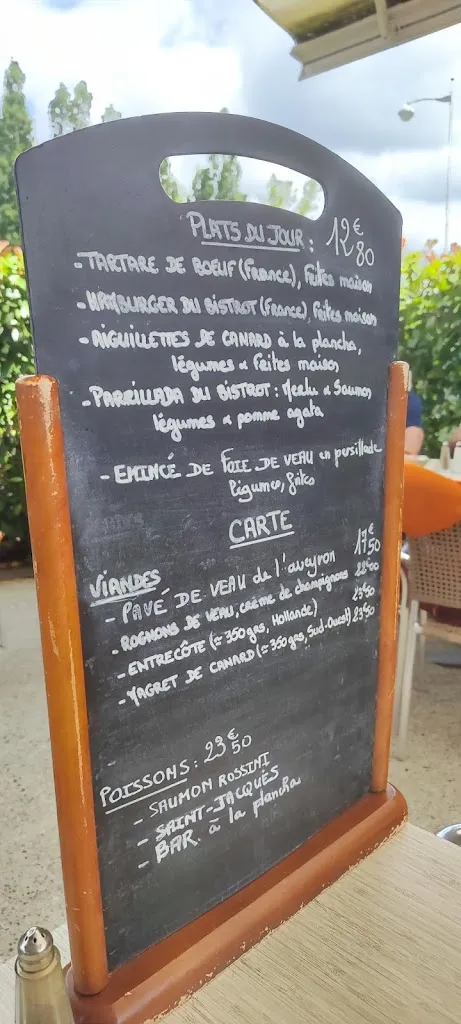 PLATS DU JOUR : 12€80
- TARTARE DE BOEUF (France), frites maison
- HAMBURGER DU BISTROT (France), frites maison
- AIGUILLETTES DE CANARD à la plancha,
légumes & frites maison
- PARRILLADA DU BISTROT : Merlu & Saumon
légumes & pomme agata
- EMINCÉ DE FOIE DE VEAU en persillade
légumes, frites
CARTE
VIANDES
- PAVÉ DE VEAU de l'aveyron 17€50
- ROGNONS DE VEAU, crème de champignons 22€00
- ENTRECÔTE (≃ 350 grs, Hollande) 23€50
- MAGRET DE CANARD (≃ 350 grs, Sud-Ouest) 23€50
POISSONS : 23€50
- SAUMON ROSSINI
- SAINT-JACQUES
- BAR à la plancha